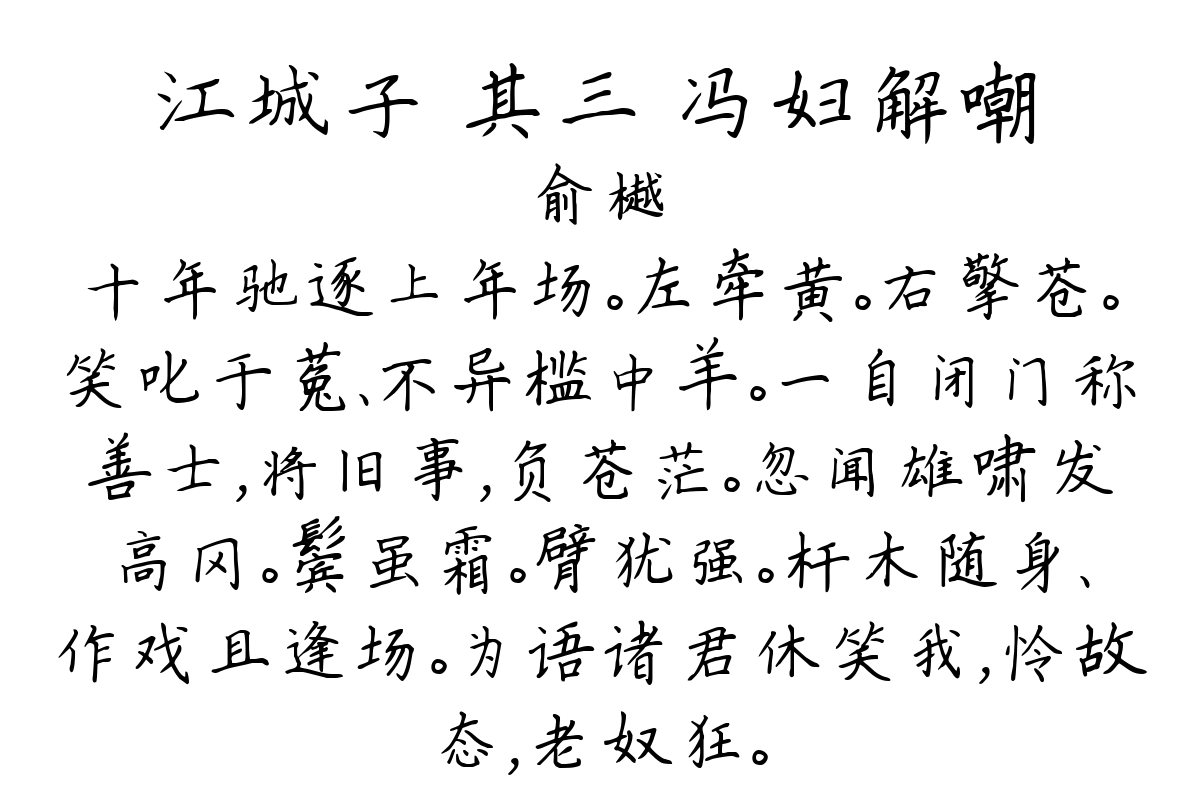 江城子 其三 冯妇解嘲
俞樾
十年驰逐上年场。左牵黄。右擎苍。
笑叱于菟、不异槛中羊。一自闭门称
善士,将旧事,负苍茫。忽闻雄啸发
高冈。鬓虽霜。臂犹强。杆木随身、
作戏且逢场。为语诸君休笑我,怜故
态,老奴狂。